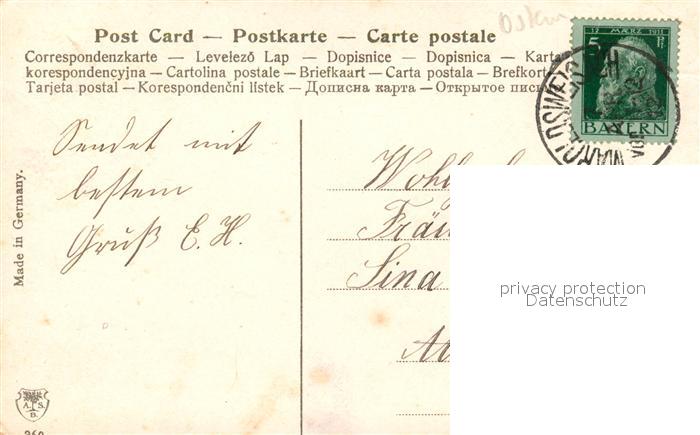 Ostern
Post Card — Postkarte — Carte postale
Correspondenzkarte — Levelező Lap — Dopisnice — Dopisnica — Karta
korespondencyjna — Cartolina postale — Briefkaart — Carta postala — Brefkort
Tarjeta postal — Korespondenční lístek — Дописна карта — Открытое пис
5 12 MÄRZ 1911 5 Pf
BAYERN
MARCLDSWEIS
Sendet mit
bestem
Gruß E. H.
Wohlge
Fräu
Sina
Made in Germany.
privacy protection
Datenschutz
A. S.
B.
360